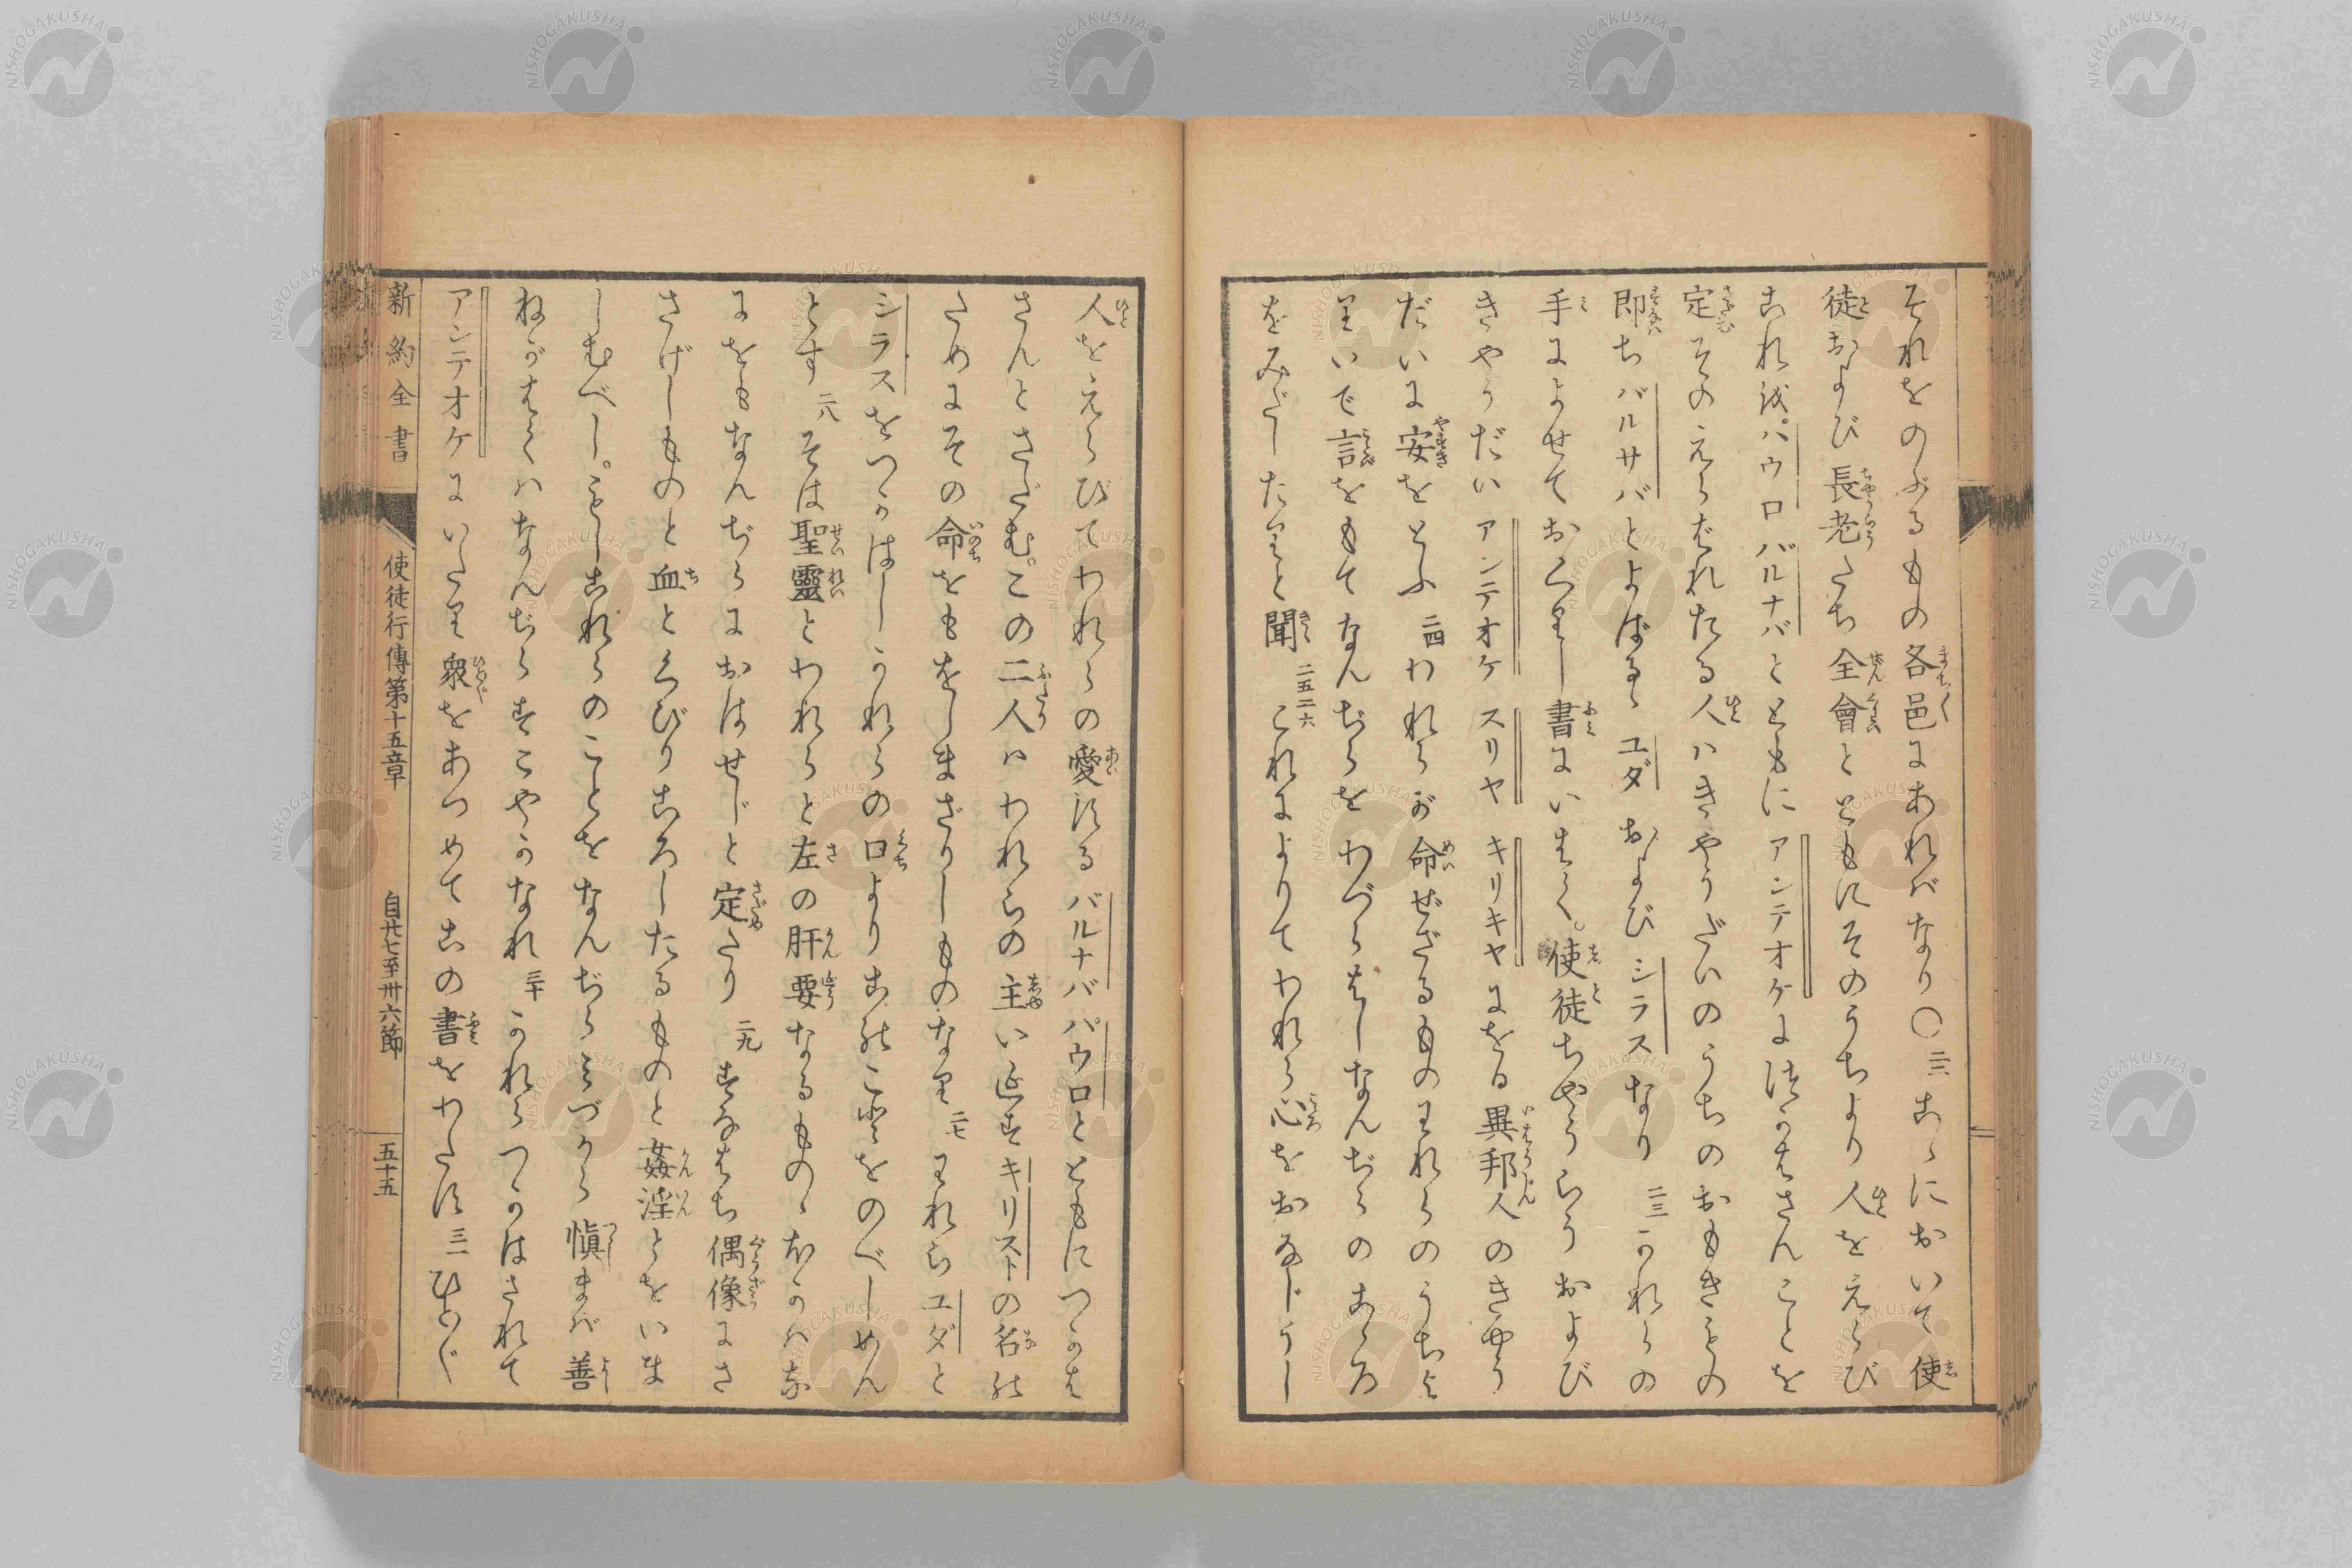 それをのぶるもの各邑にあればなり〇二二こゝにおいて使
徒および長老たち全會とともにそのうちより人をえらび
これをパウロバルナバとともにアンテオケにつかはさんことを
定むそのえらばれたる人ハきやうだいのうちのおもきもの
即ちバルサバとよばるゝユダおよびシラスなり二三かれらの
手によせておくりし書にいはく。使徒ちやうらうおよび
きやうだいアンテオケスリヤキリキヤにをる異邦人のきやう
だいに安をとふ二四われらが命ぜざるもののわれらのうちよ
りいで言をもてなんぢらをわづらはしなんぢらのこゝろ
をみだしたりと聞二五二六これによりてわれら心をおなじうし
人をえらびてわれらの愛するバルナバパウロとともにつかは
さんとさだむ。この二人ハわれらの主いエスキリストの名の
ためにその命をもをしまざりしものなり二七われらユダと
シラスをつかはしかれらの口よりこのことをのべしめん
とす二八そは聖靈とわれらと左の肝要なるものゝほかハな
にをもなんぢらにおはせじと定たり二九すなはち偶像にさ
さげしものと血とくびりころしたるものと姦淫とをいま
しむべし。もしこれらのことをなんぢらみづから愼まバ善
ねがはくハなんぢらすこやかなれ三十かれらつかはされて
アンテオケにいたり衆をあつめてこの書をわたす三一ひとぐ
新約全書
使徒行傳第十五章
自廿七至卅六節
五十五